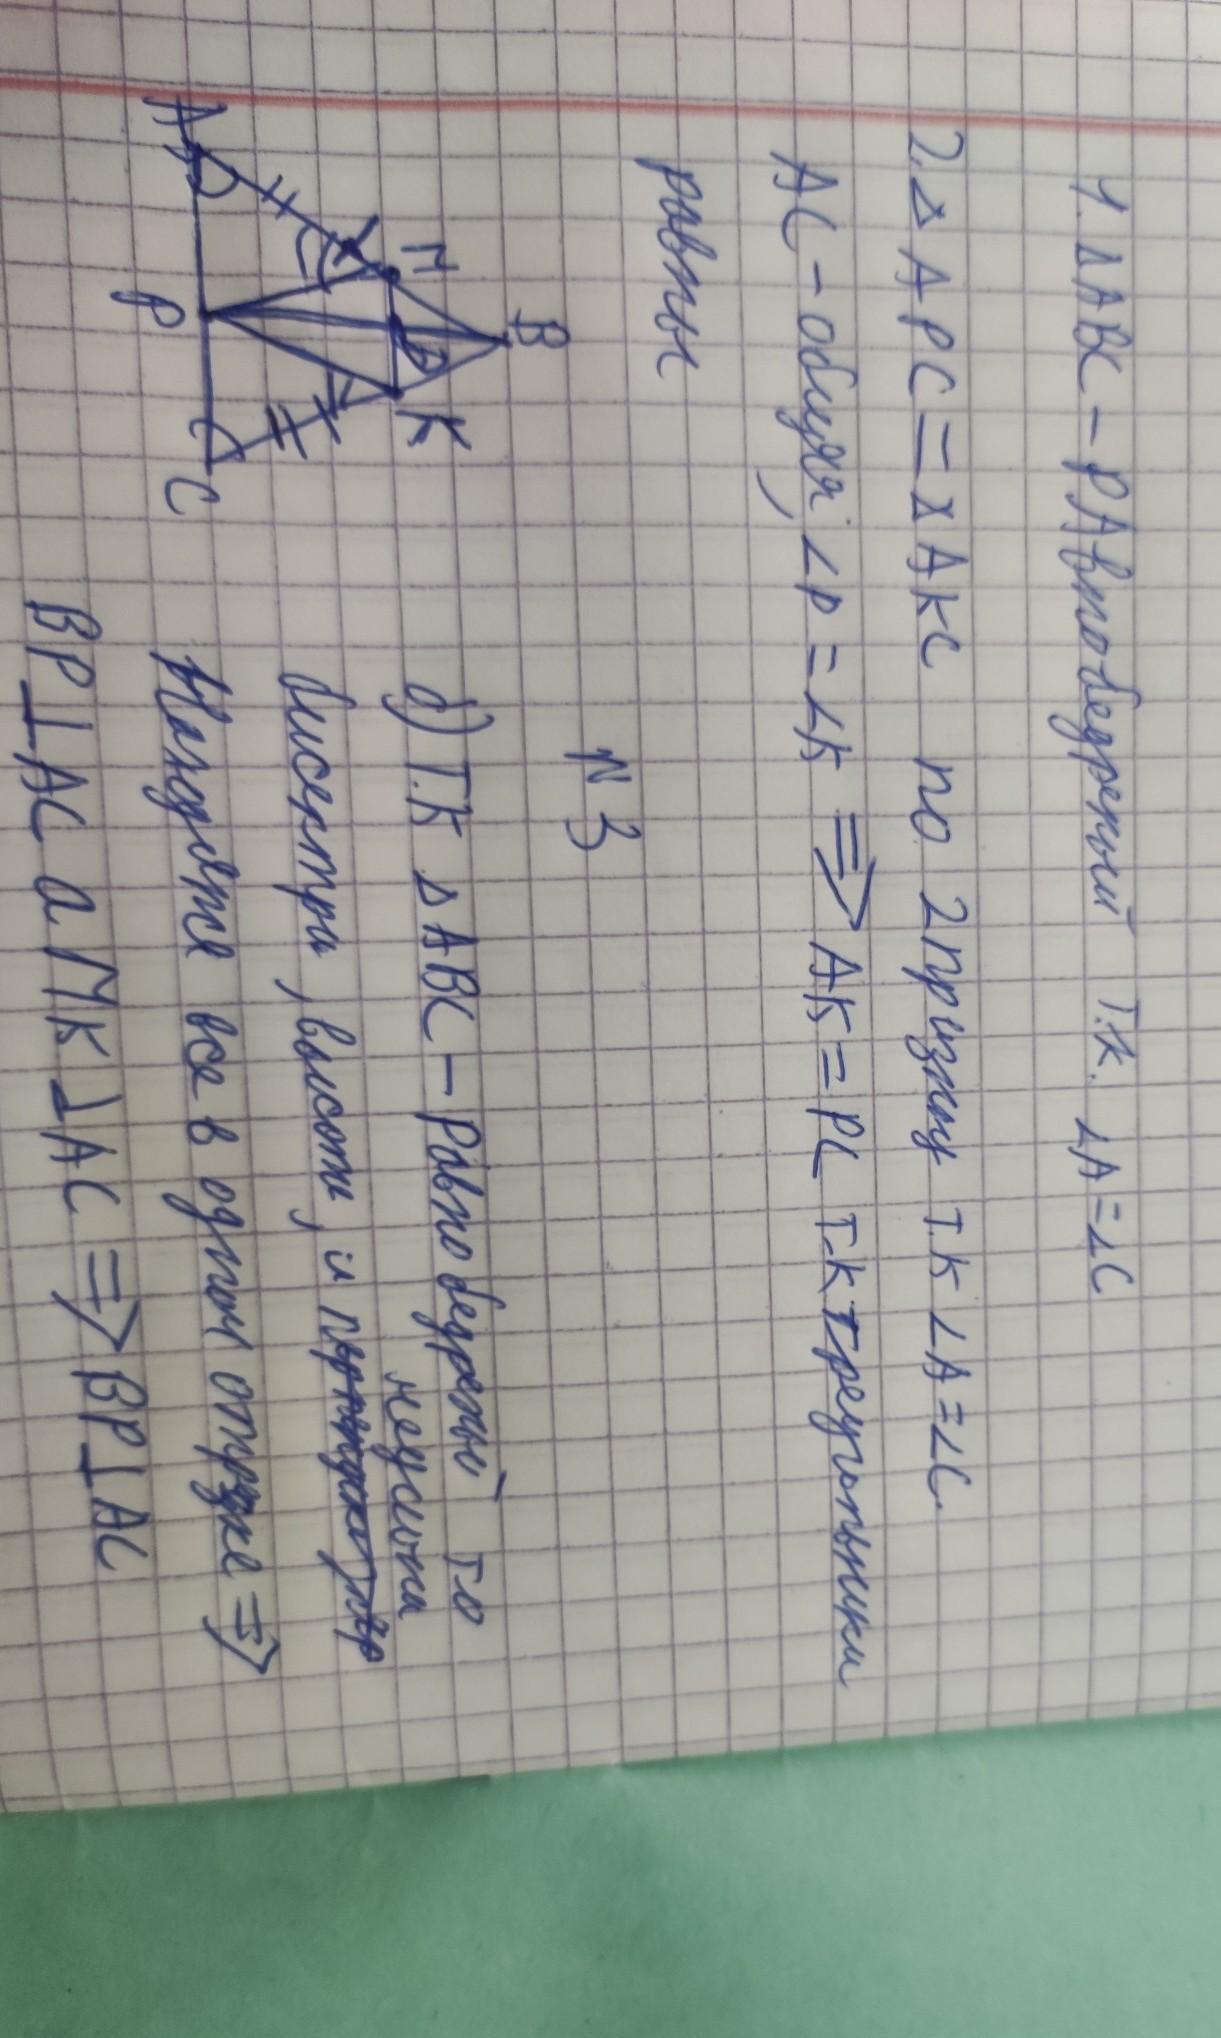 1. ΔABC - равнобедреный т.к. ∠A=∠C
2. Δ APC = ΔAKC по 2 признку т.к ∠A=∠C.
AC - общая, ∠P = ∠K ⇒ AK = PC т.к треугольники
равны
N 3
б) Т.к ΔABC - Равнобедреный то
медиана
бисектриса, высота, и
Находятся все в одном отрезке ⇒
BP⊥AC а MK⊥AC ⇒ BP⊥AC
B
M
K
A
P
C